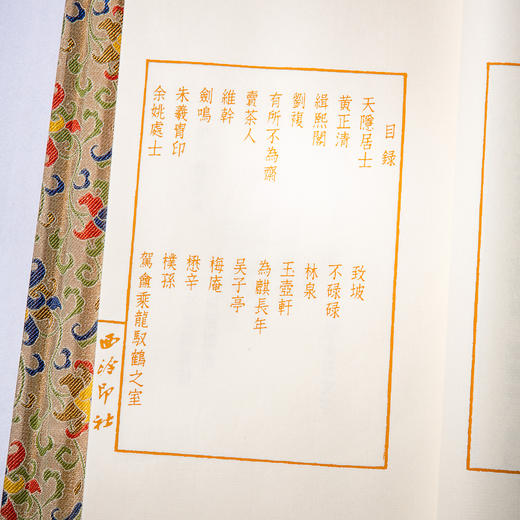 目録
天隱居士
致坡
黃正清
不碌碌
緝熙閣
林泉
劉複
玉壺軒
有所不為齋
為麒長年
賣茶人
吴子亭
維幹
梅庵
劍鳴
懋辛
朱羲胄印
樸孫
余姚處士
駕龠乘龍馭鶴之室
西泠印社